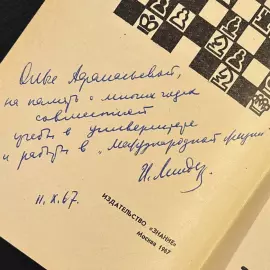 Ольге Афанасьевой,
на память о многих годах
совместной
учебы в университете
и работы в "Международной книге"
И. Линдер
11.X.67.
ИЗДАТЕЛЬСТВО «ЗНАНИЕ»
Москва 1967